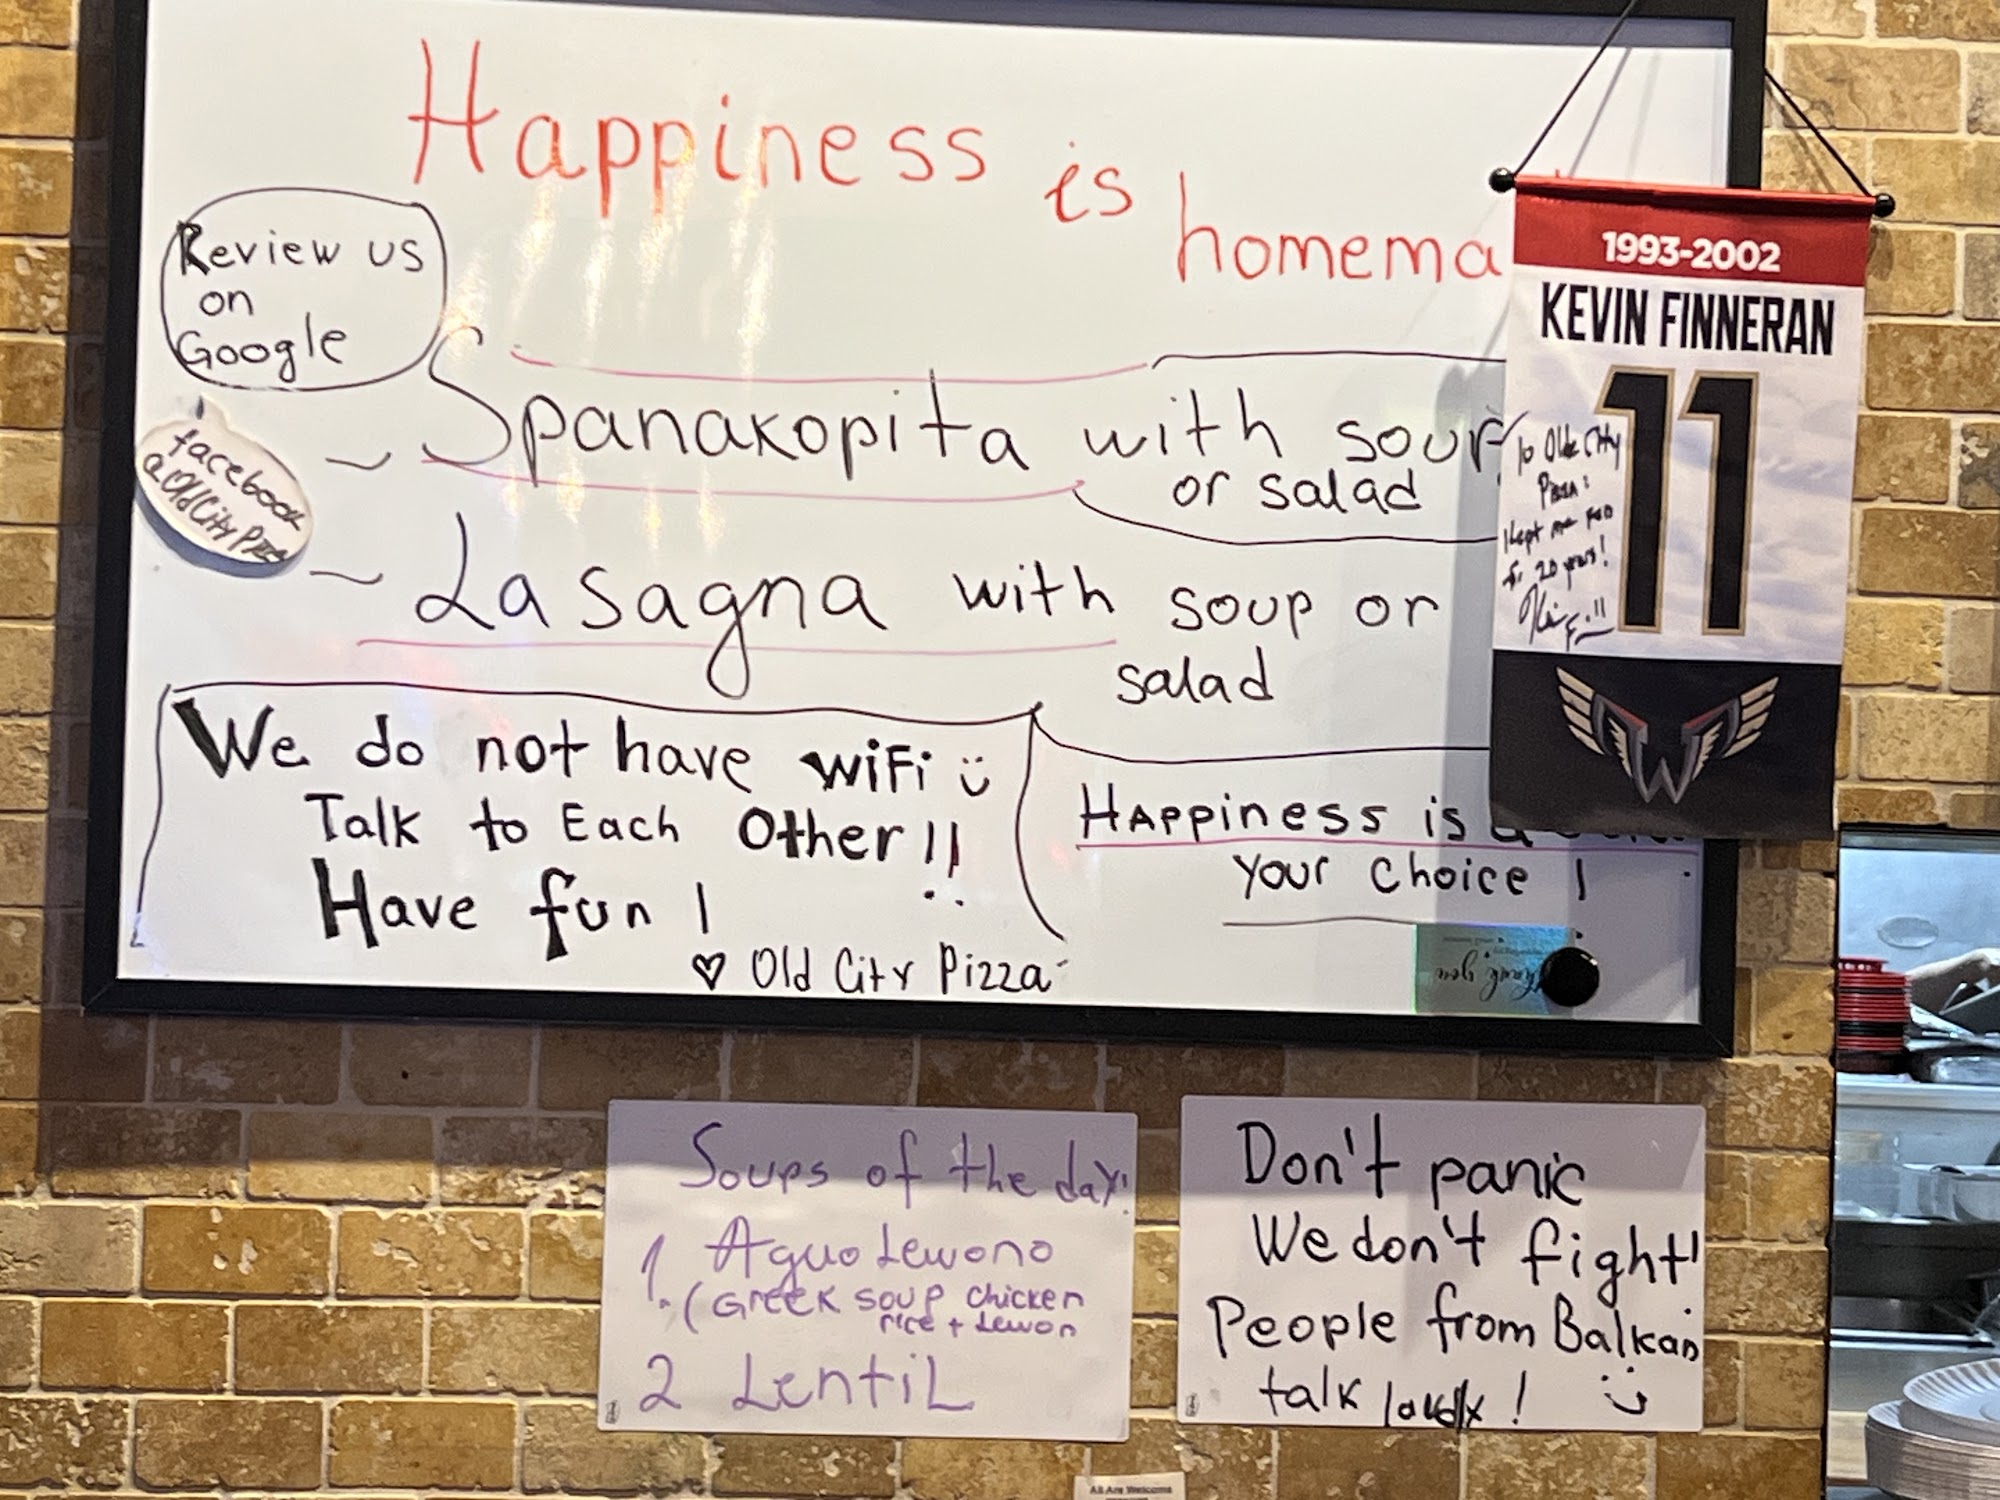 Happiness is
homema
Review us
on
Google
facebook
Spanakopita with soup
or salad
Lasagna with soup or
salad
We do not have WiFi
Talk to Each Other!!
Have fun!
♡ Old City Pizza
Happiness is
your choice!
thank you
1993-2002
KEVIN FINNERAN
11
To Olde City
Pizza:
Kept me fed
for 20 years!
Soups of the day!
1. Aguo Lewono
(Greek soup chicken
rice + Lewon
2 Lentil
Don't panic
We don't fight!
People from Balkan
talk loudly!
All Are Welcome